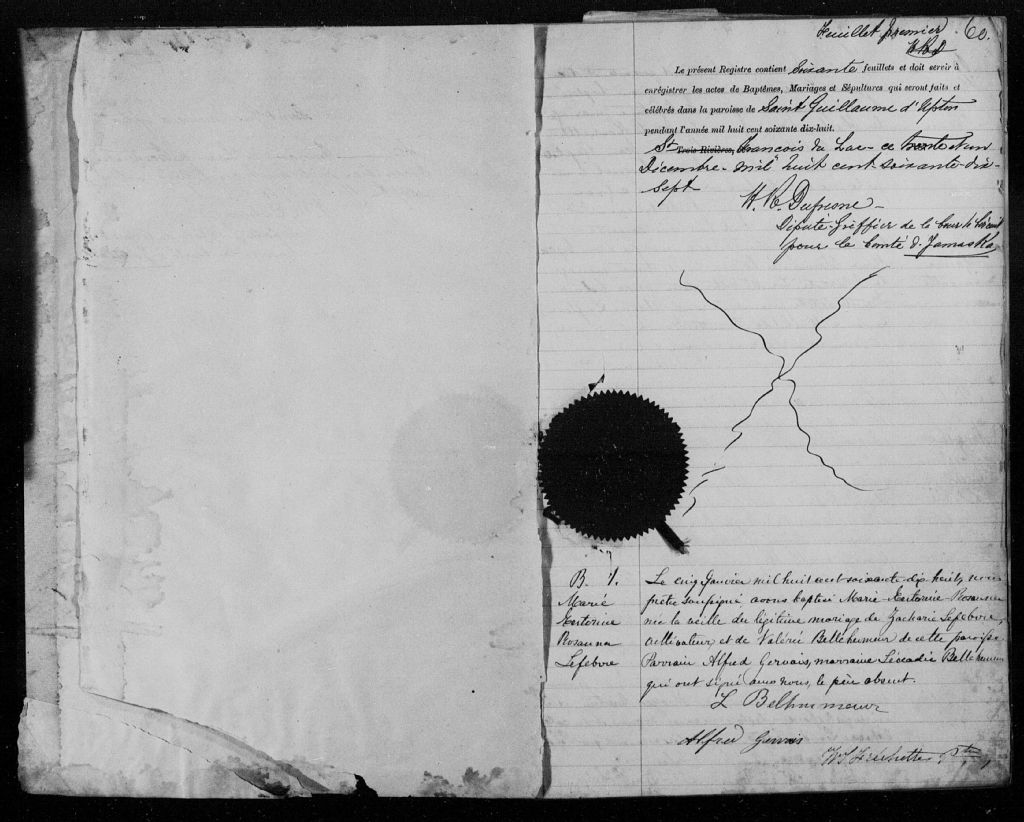 Feuillet premier. 60.
H.R.D
Le présent Registre contient Soixante feuillets et doit servir à
enrégistrer les actes de Baptêmes, Mariages et Sépultures qui seront faits et
célébrés dans la paroisse de Saint Guillaume d'Upton
pendant l'année mil huit cent soixante dix-huit.
St Trois Rivières, François du Lac - ce trente et un
Décembre - mil huit cent soixante-dix-
sept
H. R. Dufresne -
Député-Greffier de la Cour de Circuit
pour le Comté d'Yamaska
B. 1.
Marie
Rosanna
Lefebvre
Le cinq Janvier mil huit cent soixante-dix huit, nous
prêtre soussigné avons baptisé Marie Rosanna
née la veille du légitime mariage de Zacharie Lefebvre,
cultivateur et de Valérie Bellehumeur de cette paroisse
Parrain Alfred Gervais, marraine Léocadie Bellehumeur
qui ont signé avec nous, le père absent.
L Belhumeur
Alfred Gervais
Ptre